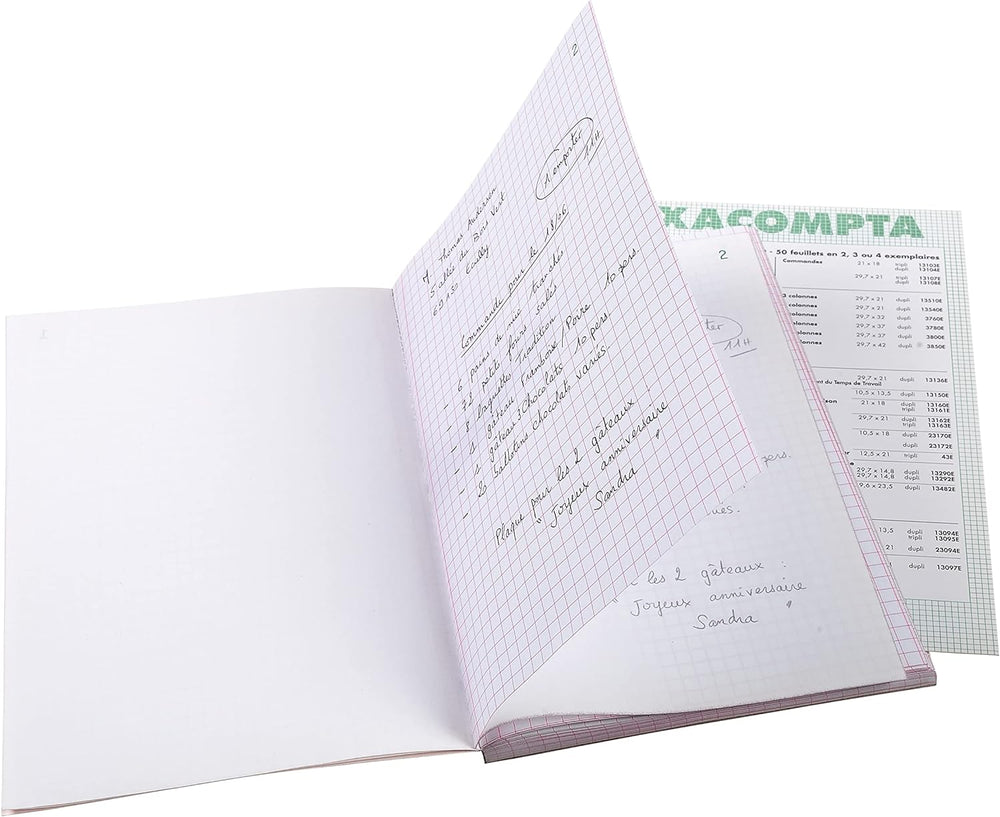 2
à emporter
11H
M. Thomas Andersen
5 allée du Bois Vert
69130 Ecully
Commande pour le 18/06
- 6 pains de mie tranchés
- 72 petits fours salés
- 8 baguettes Tradition
- 1 gâteau Framboise/Poire 10 pers.
- 1 gâteau 3 Chocolats 10 pers.
- 20 ballotins chocolats variés.
Plaque pour les 2 gâteaux
"Joyeux anniversaire
Sandra"
1
2
rter
11H
pers.
ués.
r les 2 gâteaux :
Joyeux anniversaire
Sandra "
XACOMPTA
- 50 feuillets en 2, 3 ou 4 exemplaires
Commandes 21 x 18 tripli 13103E
dupli 13104E
29,7 x 21 tripli 13107E
dupli 13108E
3 colonnes 29,7 x 21 dupli 13510E
colonnes 29,7 x 21 dupli 13540E
colonnes 29,7 x 32 dupli 3760E
colonnes 29,7 x 37 dupli 3780E
colonnes 29,7 x 37 dupli 3800E
lonnes 29,7 x 42 dupli 3850E
29,7 x 21 dupli 13136E
nt du Temps de Travail
10,5 x 13,5 dupli 13150E
ison 21 x 18 dupli 13160E
tripli 13161E
29,7 x 21 dupli 13162E
tripli 13163E
10,5 x 18 dupli 23170E
dupli 23172E
e 12,5 x 21 tripli 43E
29,7 x 14,8 dupli 13290E
29,7 x 14,8 dupli 13292E
9,6 x 23,5 dupli 13482E
13,5 dupli 13094E
tripli 13095E
21 dupli 23094E
dupli 13097E